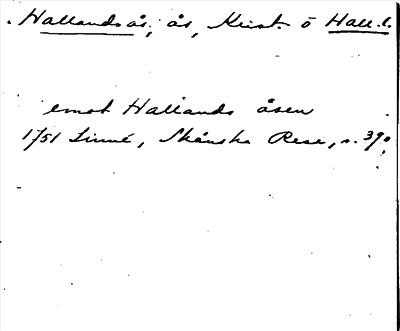 Hallandsås, ås, Krist. o Hall. l.
emot Hallands åsen
1751 Linné, Skånska Resa, s. 390.